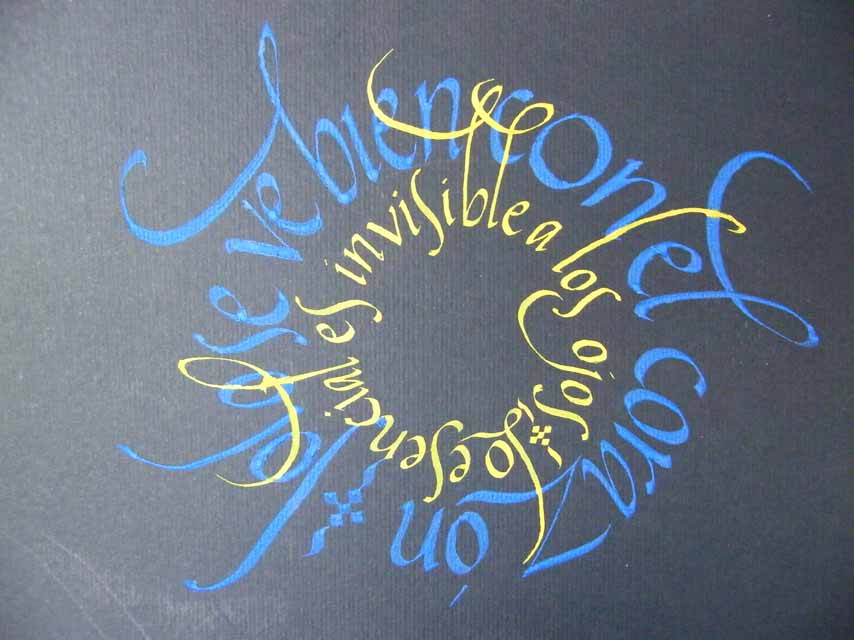 Solo se ve bien con el corazón
Lo esencial es invisible a los ojos